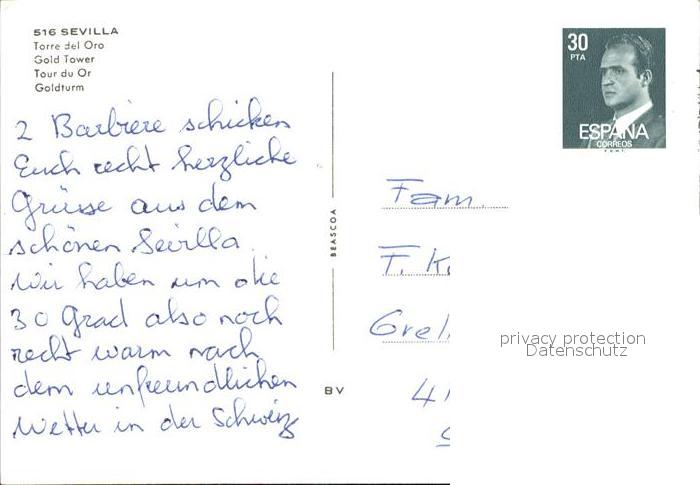 516 SEVILLA
Torre del Oro
Gold Tower
Tour du Or
Goldturm
2 Barbiere schicken
Euch recht herzliche
Grüsse aus dem
schönen Sevilla.
Wir haben um die
30 Grad also noch
recht warm nach
dem unfreundlichen
Wetter in der Schweiz
BEASCOA
BV
30
PTA
ESPAÑA
CORREOS
F.N.M.T.
Fam.
F. K.
41
privacy protection
Datenschutz